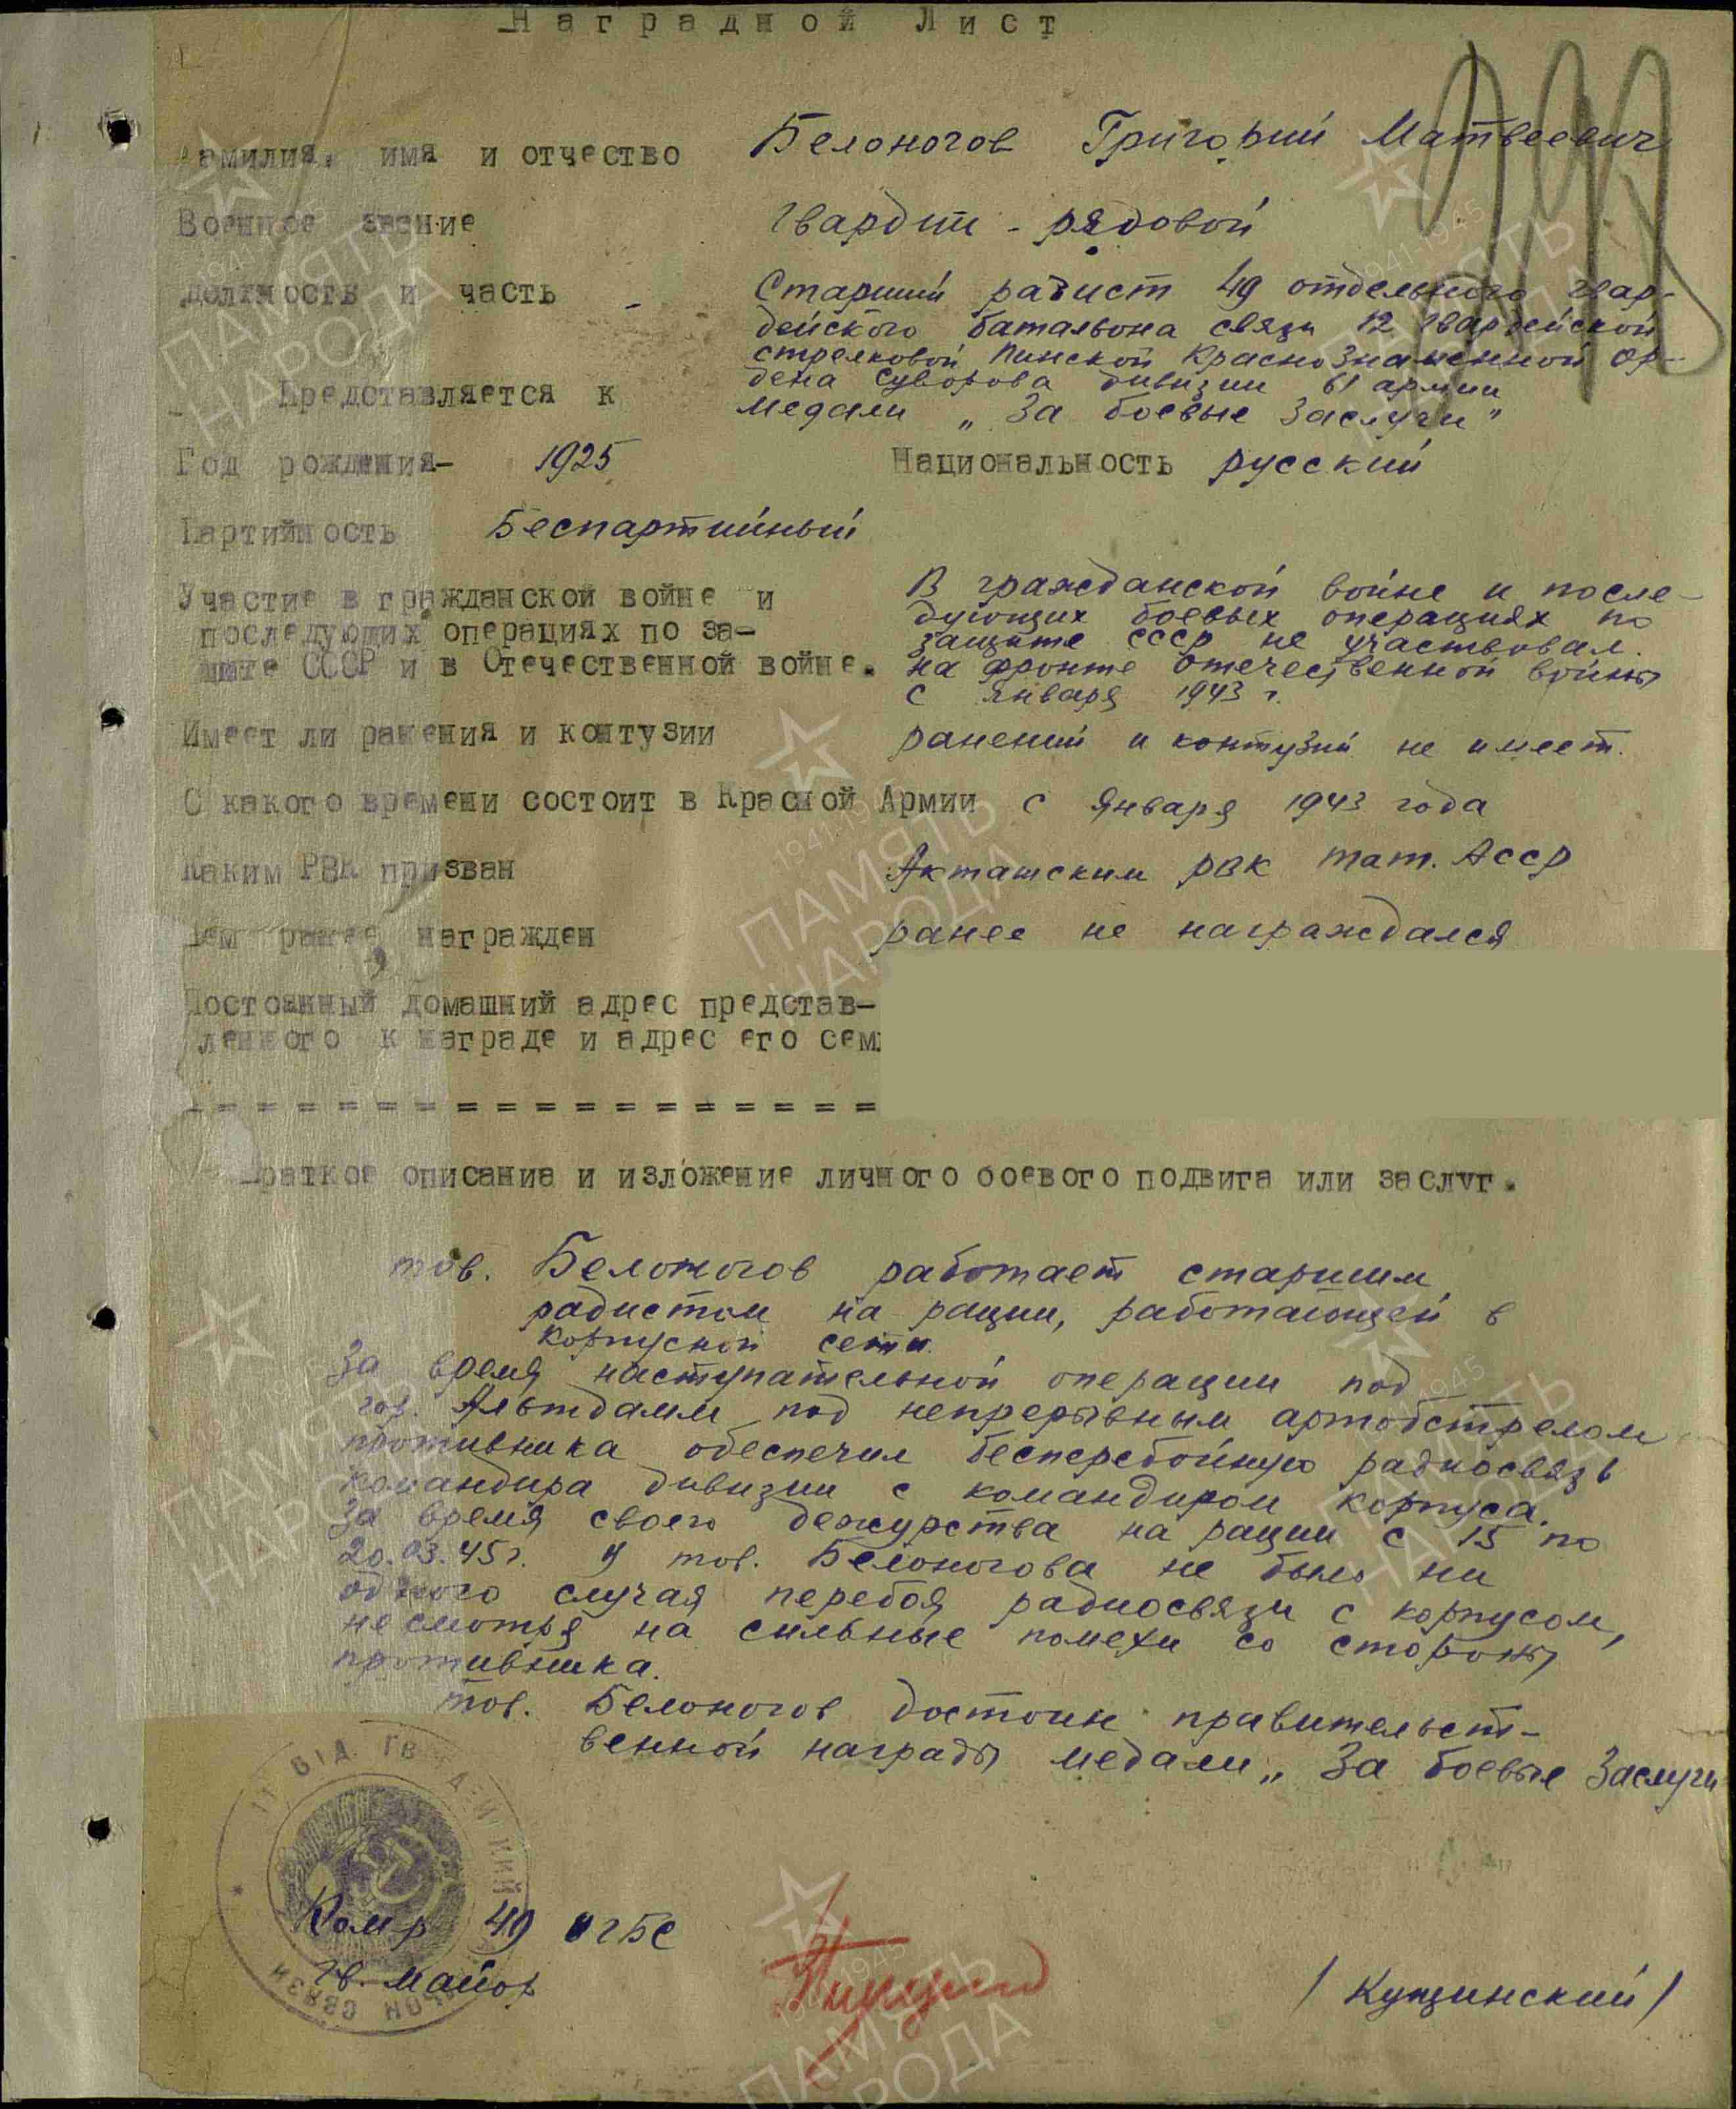 Наградной Лист
Фамилия, имя и отчество Белоногов Григорий Матвеевич
Военное звание гвардии - рядовой
должность и часть - Старший радист 49 отдельного гвар-
дейского баталвона связи 12 гвардейской
стрелковой Пинской Краснознаменной ор-
дена Суворова дивизии 61 армии
Представляется к медали „За боевые заслуги"
Год рождения- 1925 Национальность русский
Партийность Беспартийный
Участие в гражданской войне и
последующих операциях по за-
щите СССР и в Отечественной войне.
В гражданской войне и после-
дующих боевых операциях по
защите СССР не участвовал.
на фронте отечественной войны
с января 1943 г.
Имеет ли ранения и контузии ранений и контузий не имеет.
С какого времени состоит в Красной Армии с января 1943 года
Каким РВК призван Акташским РВК Тат. АССР
Чем ранее награжден ранее не награждался
Постоянный домашний адрес представ-
ленного к награде и адрес его сем
Краткое описание и изложение личного боевого подвига или заслуг.
тов. Белоногов работает старшим
радистом на рации, работающей в
корпусной сети.
За время наступательной операции под
гор. Альтдамм под непрерывным артобстрелом
противника обеспечил бесперебойную радиосвязь
командира дивизии с командиром корпуса.
За время своего дежурства на рации с 15 по
20.03.45г. у тов. Белоногова не было ни
одного случая перебоя радиосвязи с корпусом,
несмотря на сильные помехи со стороны
противника.
тов. Белоногов достоин правительст-
венной награды медали „За боевые заслуги
Ком-р 49 ОГБС
гв. майор
/Кущинский/
ПАМЯТЬ НАРОДА
1941-1945